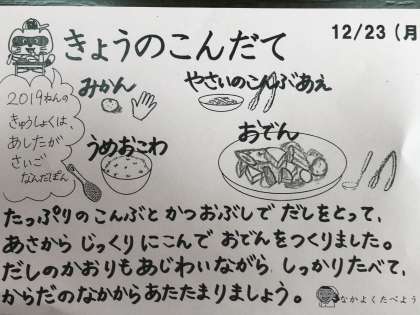 12/23(月
きょうのこんだて
みかん
やさいのこんぶあえ
2019ねんの
きゅうしょくは、
あしたが
さいご
なんだぽん
うめおこわ
おでん
たっぷりのこんぶとかつおぶしでだしをとって、
あさからじっくりにこんでおでんをつくりました。
だしのかおりもあじわいながらしっかりたべて、
からだのなかからあたたまりましょう。
なかよくたべよう